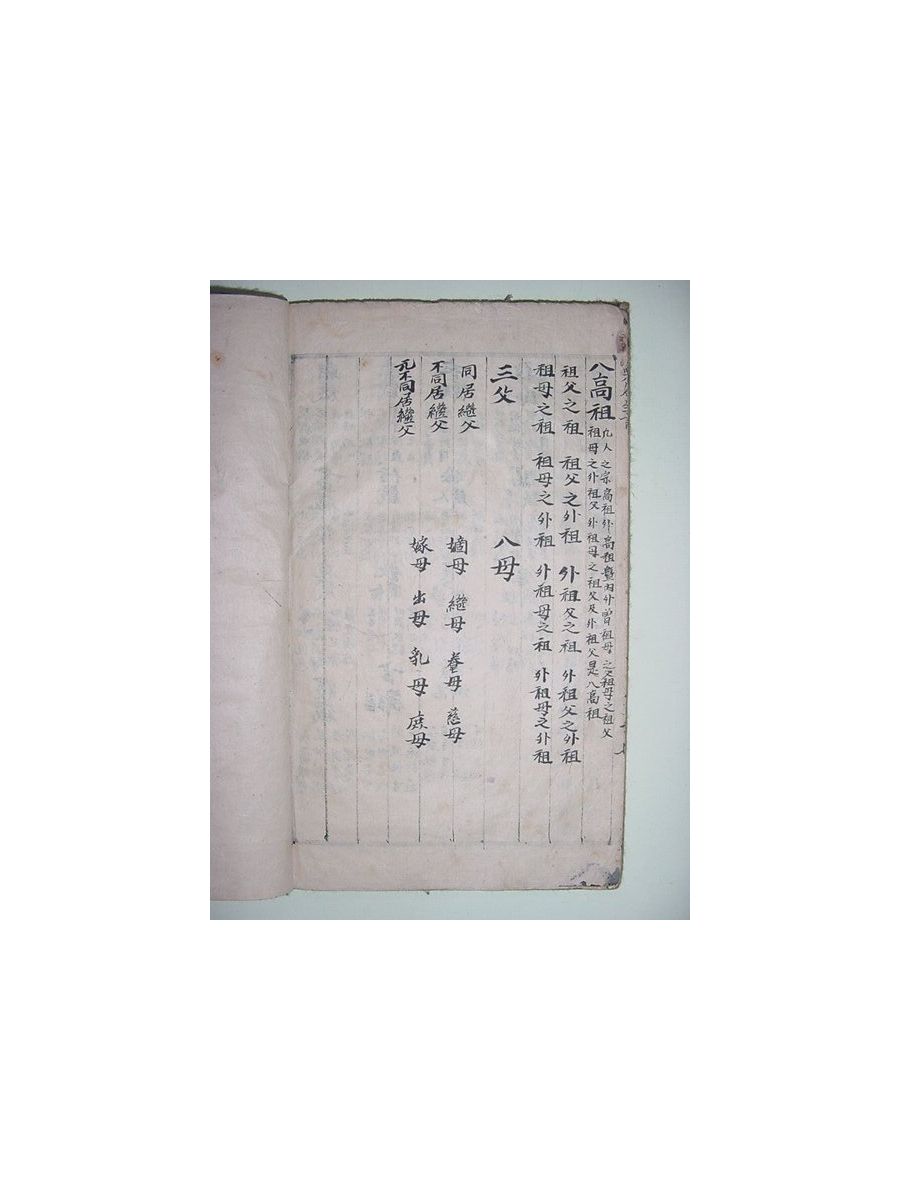 八高祖 凡人之宗高祖外高祖暨內外曾祖母之父祖母之祖父
祖母之外祖父外祖母之祖父及外祖父是八高祖
祖父之祖 祖父之外祖 外祖父之祖 外祖父之外祖
祖母之祖 祖母之外祖 外祖母之祖 外祖母之外祖
三父 八母
同居繼父
不同居繼父
元不同居繼父
嫡母 繼母 養母 慈母
嫁母 出母 乳母 庶母